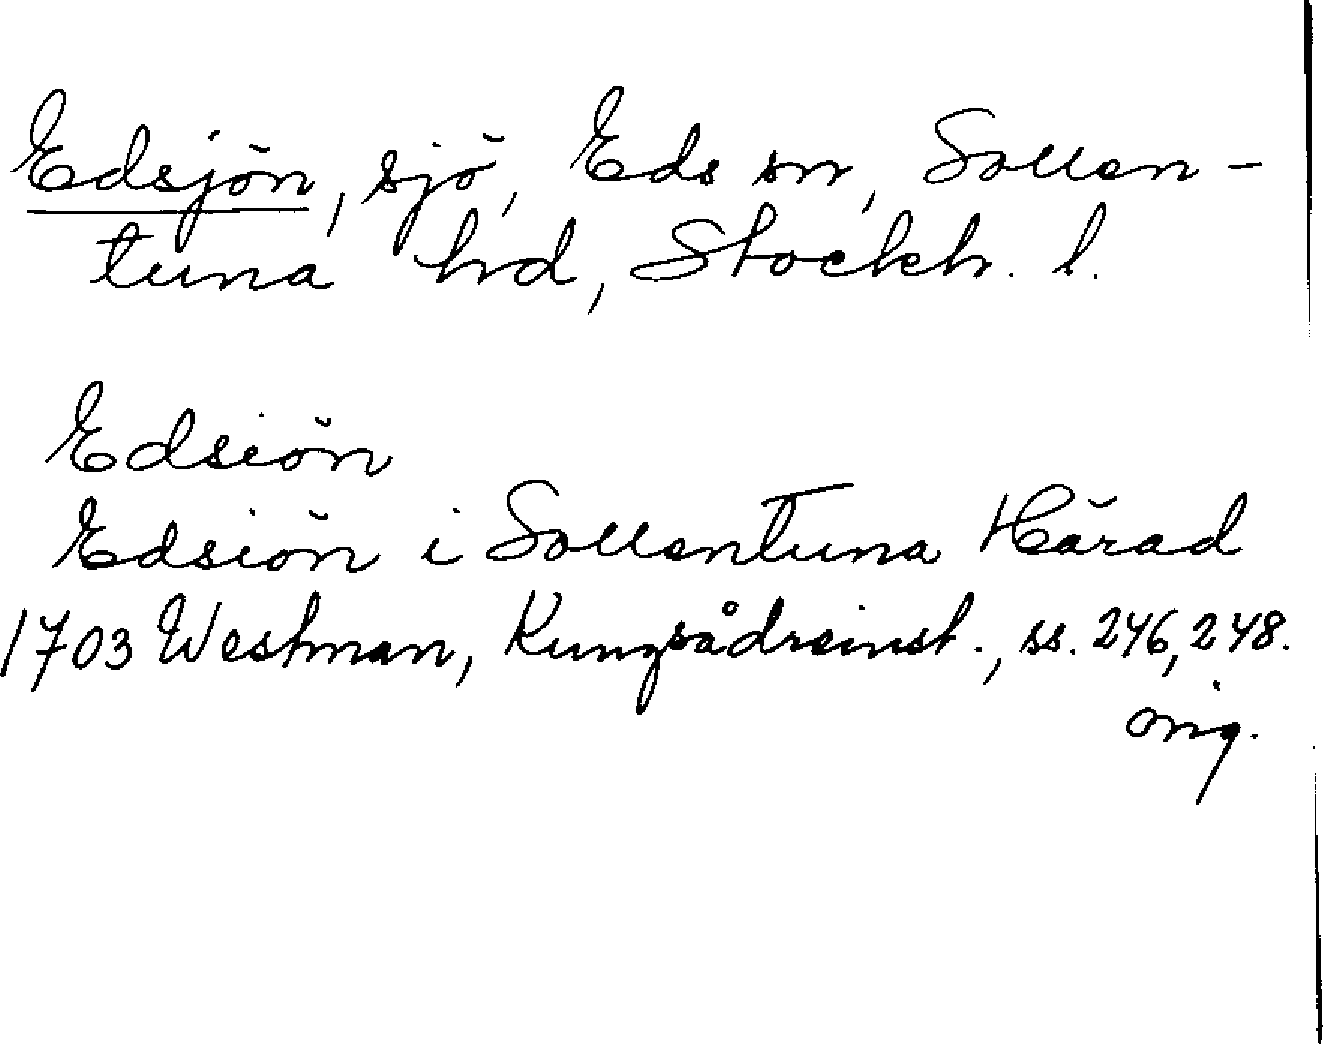 Edsjön, sjö, Eds sn, Sollen-
tuna hd, Stockh. l.
Edsiön
Edsiön i Sollentuna Härad
1703 Westman, Kungsådreinst., ss. 246, 248.
orig.